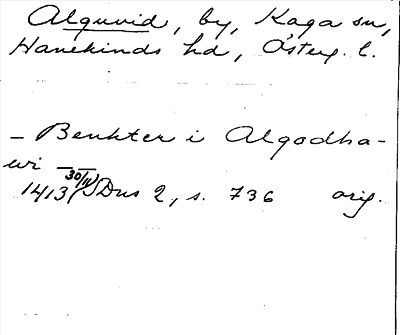 Alguvid, by, Kaga sn,
Hanekinds hd, Österg. l.
— Benkter i Algodha-
wi —
1413 (30/11) Dns 2, s. 736 orig.